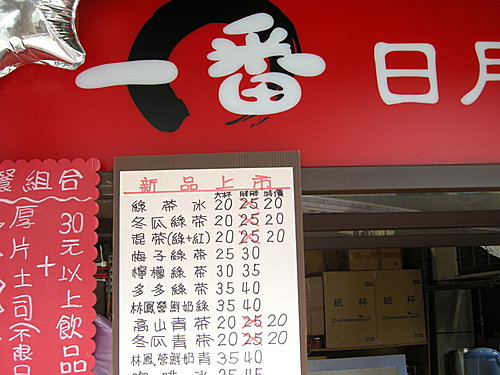 一番 日月
新品上市
大杯 胖胖 特價
綠茶冰 20 25 20
冬瓜綠茶 20 25 20
混茶(綠+紅) 20 25 20
梅子綠茶 25 30
檸檬綠茶 30 35
多多綠茶 35 40
林鳳營鮮奶綠 35 40
高山青茶 20 25 20
冬瓜青茶 20 25 20
林鳳營鮮奶青 35 40
咖啡冰 35 40
餐組合
厚片土司(不限口
+
30元以上飲品
紙杯
紙杯